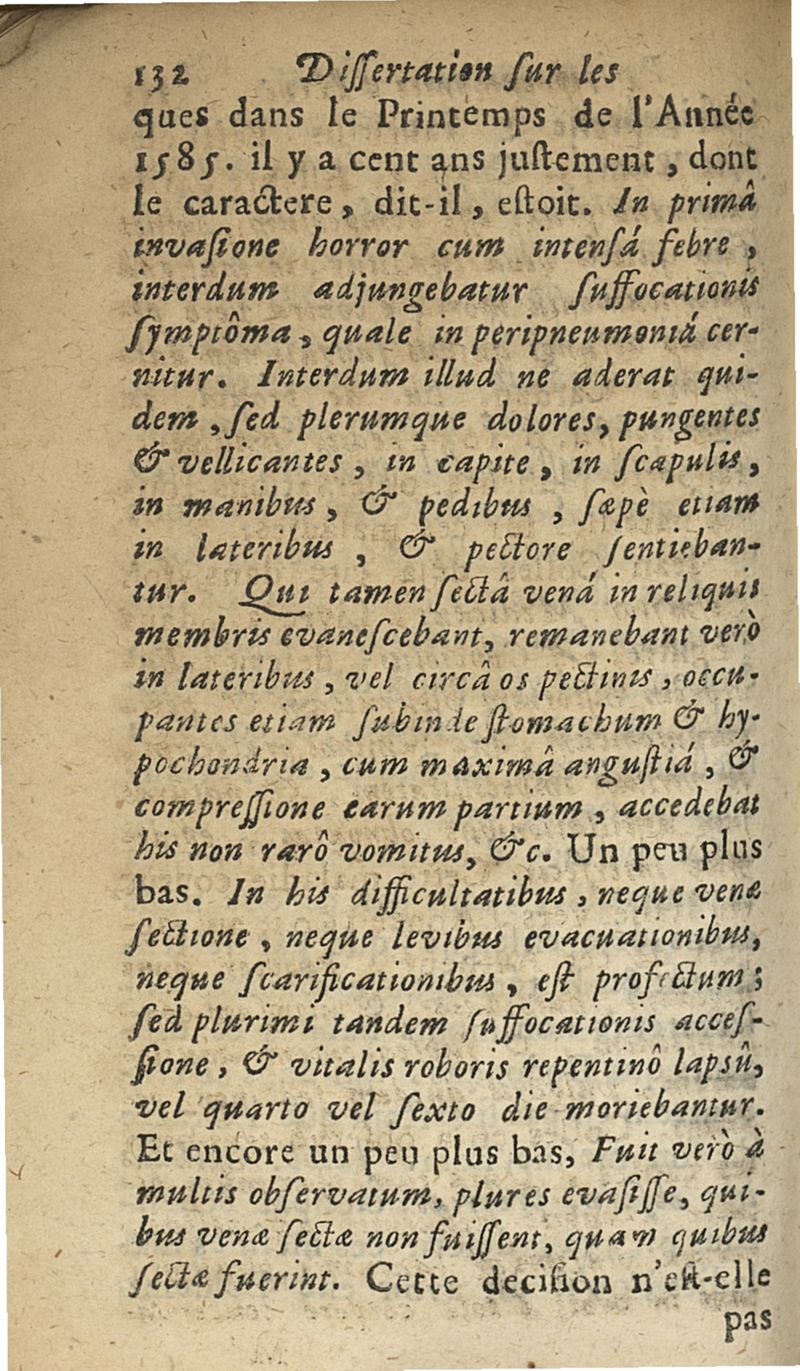 132 Dissertation sur les
ques dans le Printemps de l'Année
1585. il y a cent ans justement, dont
le caractere, dit-il, estoit. In primâ
invasione horror cum intensá febre,
interdum adjungebatur suffocationis
symptôma, quale in peripneumoniá cer-
nitur. Interdum illud ne aderat qui-
dem, sed plerumque dolores, pungentes
& vellicantes, in capite, in scapulis,
in manibus, & pedibus, sæpè etiam
in lateribus, & pectore sentieban-
tur. Qui tamen sectâ vená in reliquis
membris evanescebant, remanebant verò
in lateribus, vel circâ os pectinis, occu-
pantes etiam subinde stomachum & hy-
pochondria, cum maximâ angustiá, &
compressione earum partium, accedebat
his non rarô vomitus, &c. Un peu plus
bas. In his difficultatibus, neque venæ
sectione, neque levibus evacuationibus,
neque scarificationibus, est profectum;
sed plurimi tandem suffocationis acces-
sione, & vitalis roboris repentinô lapsû,
vel quarto vel sexto die moriebantur.
Et encore un peu plus bas, Fuit verò à
multis observatum, plures evasisse, qui-
bus venæ sectæ non fuissent, quam quibus
sectæ fuerint. Cette decision n'est-elle
pas